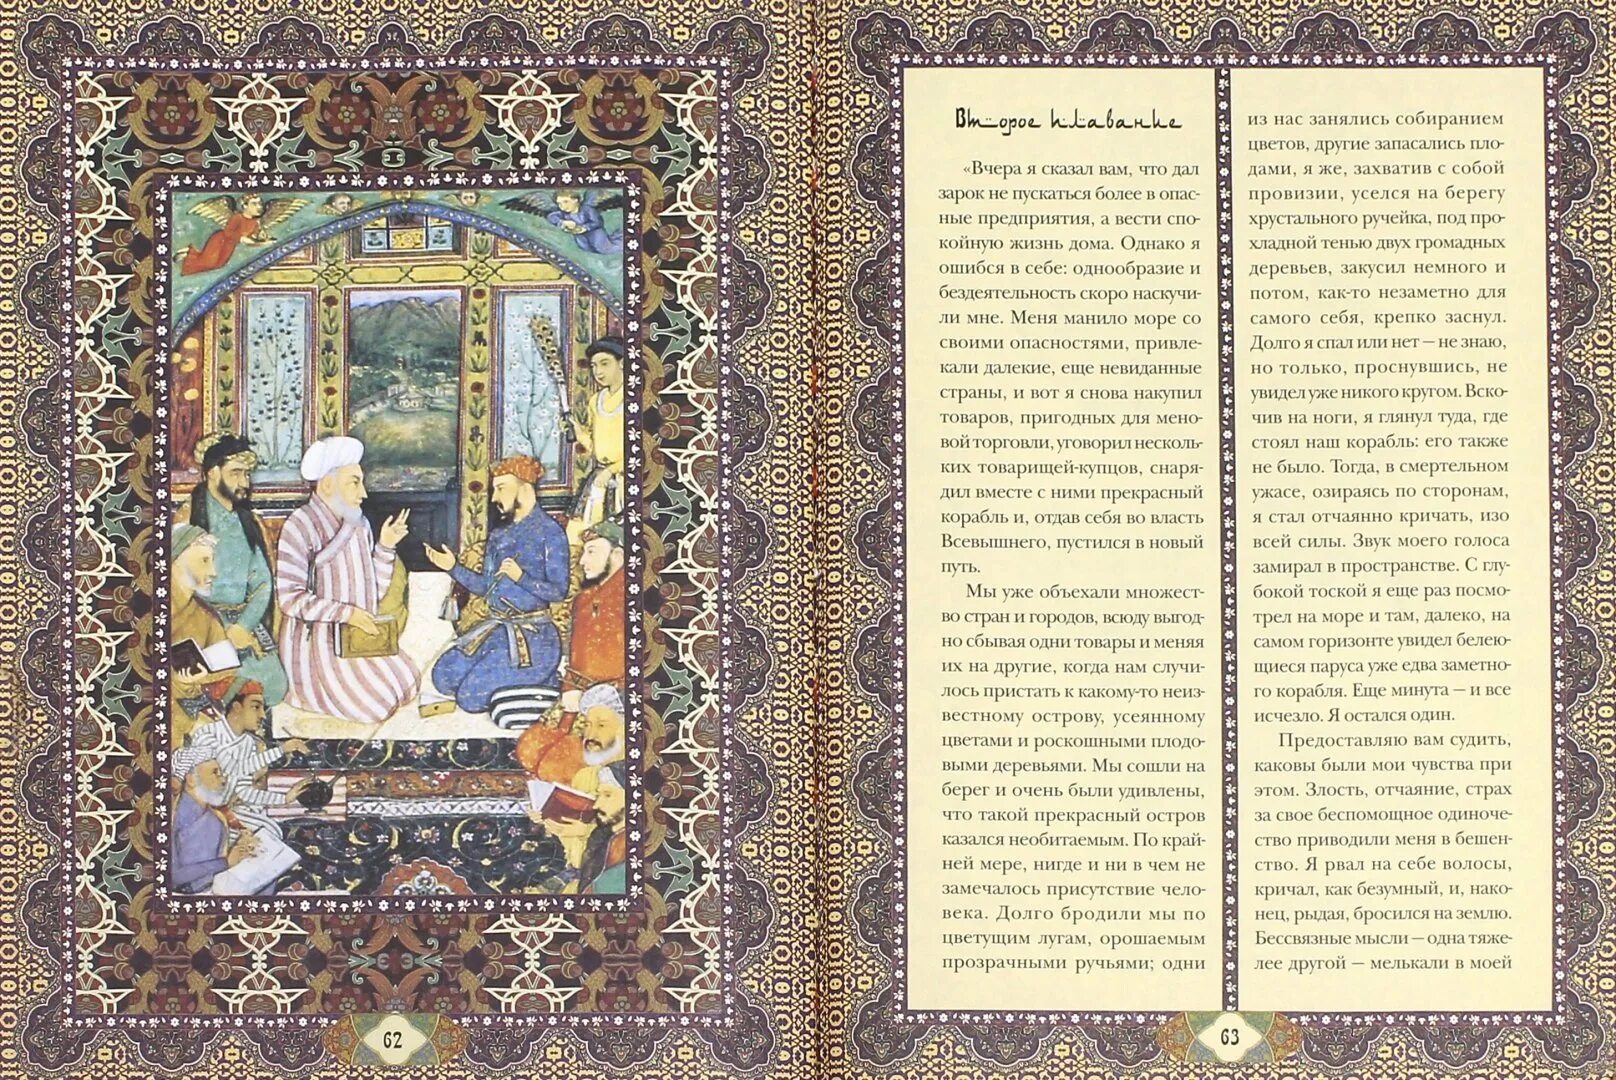 62
Второе плавание
«Вчера я сказал вам, что дал
зарок не пускаться более в опас-
ные предприятия, а вести спо-
койную жизнь дома. Однако я
ошибся в себе: однообразие и
бездеятельность скоро наскучи-
ли мне. Меня манило море со
своими опасностями, привле-
кали далекие, еще невиданные
страны, и вот я снова накупил
товаров, пригодных для мено-
вой торговли, уговорил несколь-
ких товарищей-купцов, снаря-
дил вместе с ними прекрасный
корабль и, отдав себя во власть
Всевышнего, пустился в новый
путь.
Мы уже объехали множест-
во стран и городов, всюду выгод-
но сбывая одни товары и меняя
их на другие, когда нам случи-
лось пристать к какому-то неиз-
вестному острову, усеянному
цветами и роскошными плодо-
выми деревьями. Мы сошли на
берег и очень были удивлены,
что такой прекрасный остров
казался необитаемым. По край-
ней мере, нигде и ни в чем не
замечалось присутствие чело-
века. Долго бродили мы по
цветущим лугам, орошаемым
прозрачными ручьями; одни
из нас занялись собиранием
цветов, другие запасались пло-
дами, я же, захватив с собой
провизии, уселся на берегу
хрустального ручейка, под про-
хладной тенью двух громадных
деревьев, закусил немного и
потом, как-то незаметно для
самого себя, крепко заснул.
Долго я спал или нет — не знаю,
но только, проснувшись, не
увидел уже никого кругом. Вско-
чив на ноги, я глянул туда, где
стоял наш корабль: его также
не было. Тогда, в смертельном
ужасе, озираясь по сторонам,
я стал отчаянно кричать, изо
всей силы. Звук моего голоса
замирал в пространстве. С глу-
бокой тоской я еще раз посмо-
трел на море и там, далеко, на
самом горизонте увидел белею-
щиеся паруса уже едва заметно-
го корабля. Еще минута — и все
исчезло. Я остался один.
Предоставляю вам судить,
каковы были мои чувства при
этом. Злость, отчаяние, страх
за свое беспомощное одиноче-
ство приводили меня в бешен-
ство. Я рвал на себе волосы,
кричал, как безумный, и, нако-
нец, рыдая, бросился на землю.
Бессвязные мысли — одна тяже-
лее другой — мелькали в моей
63